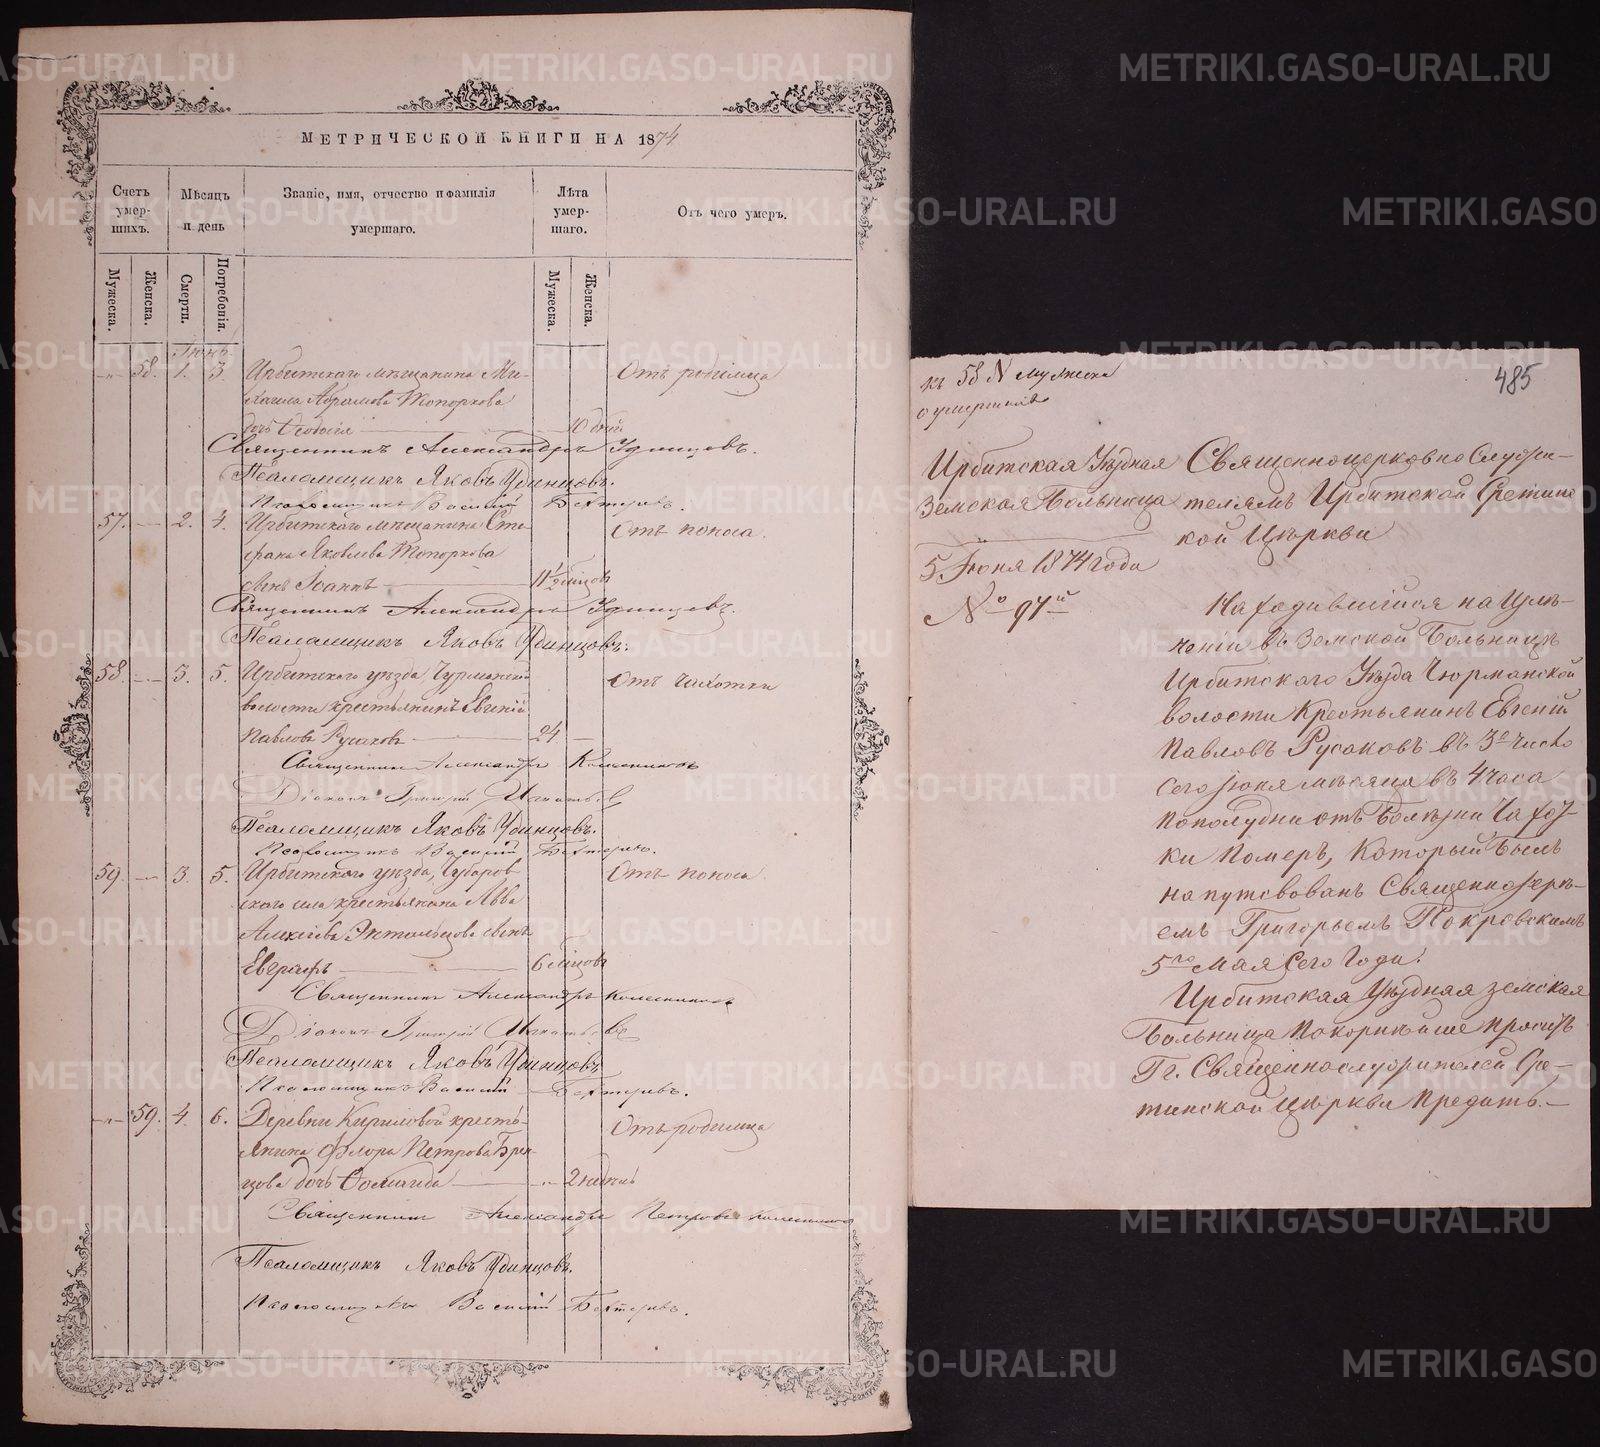 МЕТРИЧЕСКОЙ КНИГИ НА 1874
Счетъ умерших.
Мѣсяцъ и день
Званіе, имя, отчество и фамилія умершаго.
Лѣта умершаго.
Отъ чего умеръ.
Мужеска.
Женска.
Смерти.
Погребенія.
Мужеска.
Женска.
Іюнь
-"- 58. 1. 3. Ирбитскаго мѣщанина Ми-
хаила Абрамова Топоркова
дочь Ѳеодосія 10 дней
Отъ родимца
Священникъ Александръ Удинцовъ.
Псаломщикъ Яковъ Удинцовъ.
Псаломщикъ Василій Бехтеревъ.
57. 2. 4. Ирбитскаго мѣщанина Сте-
фана Яковлева Топоркова
сынъ Іоаннъ 1 1/2 мѣсяцовъ
Отъ поноса.
Священникъ Александръ Удинцовъ.
Псаломщикъ Яковъ Удинцовъ.
58. 3. 5. Ирбитскаго уѣзда, Чурманской
волости крестьянинъ Евгеній
Павловъ Русаковъ 24
Отъ чахотки
Священникъ Александръ Колесниковъ
Діаконъ Григорій
Псаломщикъ Яковъ Удинцовъ.
Псаломщикъ Василій Бехтеревъ.
59. 3. 5. Ирбитскаго уѣзда, Чубаров
скаго села крестьянина Льва
Алексѣева сынъ
Евграфъ 6 мѣсяцовъ
Отъ поноса
Священникъ Александръ Колесниковъ
Діаконъ Григорій
Псаломщикъ Яковъ Удинцовъ
Псаломщикъ Василій Бехтеревъ.
-"- 59. 4. 6. Деревни Кириловой кресть-
янина Флора Петрова
дочь 2 недѣль
Отъ родимца
Священникъ Александръ Петровъ Колесниковъ
Псаломщикъ Яковъ Удинцовъ.
Псаломщикъ Василій Бехтеревъ.
къ 58 N мужеска
о умершихъ
485
Ирбитская Уѣздная
Земская Больница
5 Іюня 1874 года
№ 97й
Священноцерковно Служи-
телямъ Ирбитской Сретинс
кой Цѣркви
Находившійся на Излѣ-
ченіи въ Земской Больницѣ
Ирбитскаго Уѣзда Чюрманской
волости Крестьянинъ Евгеній
Павловъ Русаковъ въ 3е число
сего Іюня мѣсяца въ 4 часа
пополудни отъ Болѣзни Чахот-
ки Померъ, Который былъ
напутсвованъ Священноіере-
емъ Григорьемъ Покровскимъ
5го Мая Сего Года.
Ирбитская Уѣздная земская
Больница Покорнѣйше Проситъ
Гг. Священнослужителей Сре-
тинской Цѣркви Предать.-
METRIKI.GASO-URAL.RU